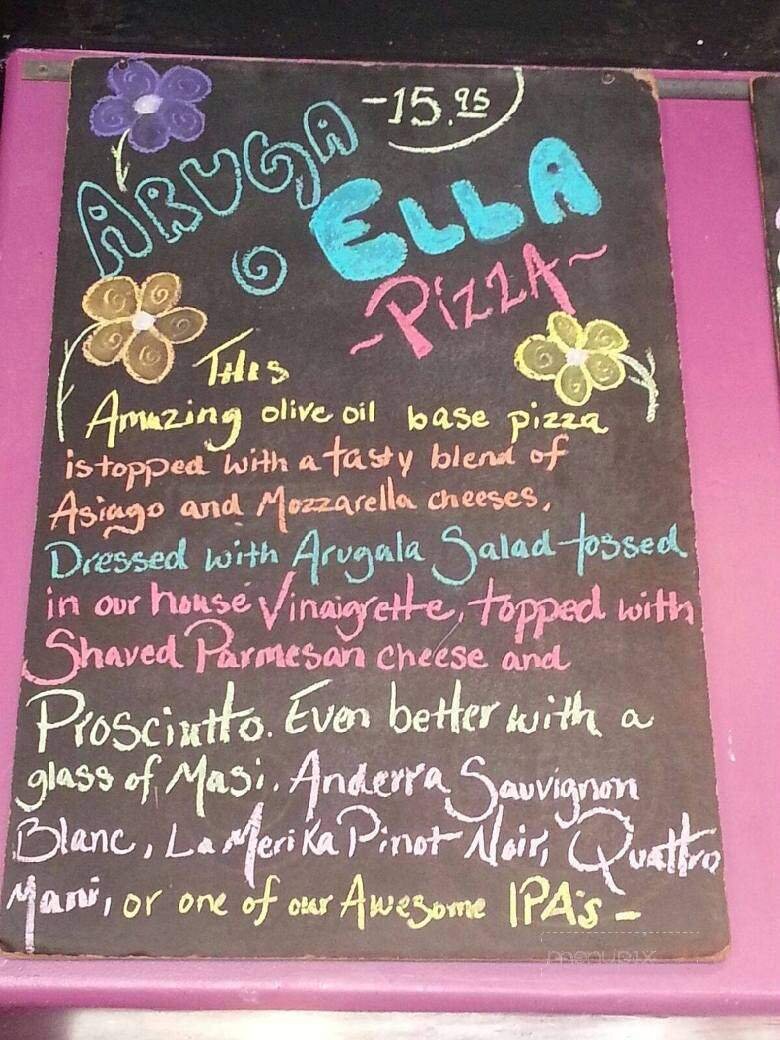 -15.95
ARUGA
ELLA
~PIZZA~
This
Amazing olive oil base pizza
is topped with a tasty blend of
Asiago and Mozzarella cheeses.
Dressed with Arugala Salad tossed
in our house Vinaigrette, topped with
Shaved Parmesan cheese and
Prosciutto. Even better with a
glass of Masi, Anderra Sauvignon
Blanc, La Merika Pinot Noir, Quattro
Mani, or one of our Awesome IPA's -